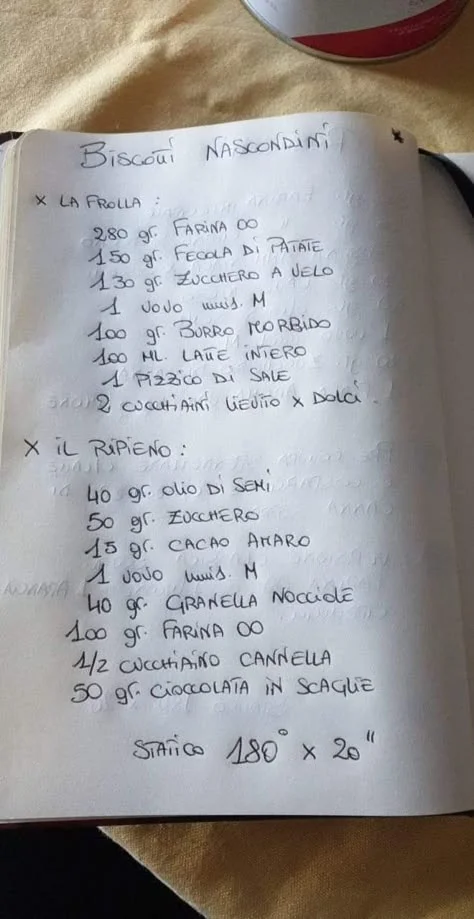 BISCOTTI NASCONDINI
X LA FROLLA :
280 gr. FARINA 00
150 gr. FECOLA DI PATATE
130 gr. ZUCCHERO A VELO
1 UOVO mis. M
100 gr. BURRO MORBIDO
100 ML. LATTE INTERO
1 PIZZICO DI SALE
2 CUCCHIAINI LIEVITO X DOLCI.
X IL RIPIENO :
40 gr. OLIO DI SEMI
50 gr. ZUCCHERO
15 gr. CACAO AMARO
1 UOVO mis. M
40 gr. GRANELLA NOCCIOLE
100 gr. FARINA 00
1/2 CUCCHIAINO CANNELLA
50 gr. CIOCCOLATA IN SCAGLIE
STATICO 180° X 20"